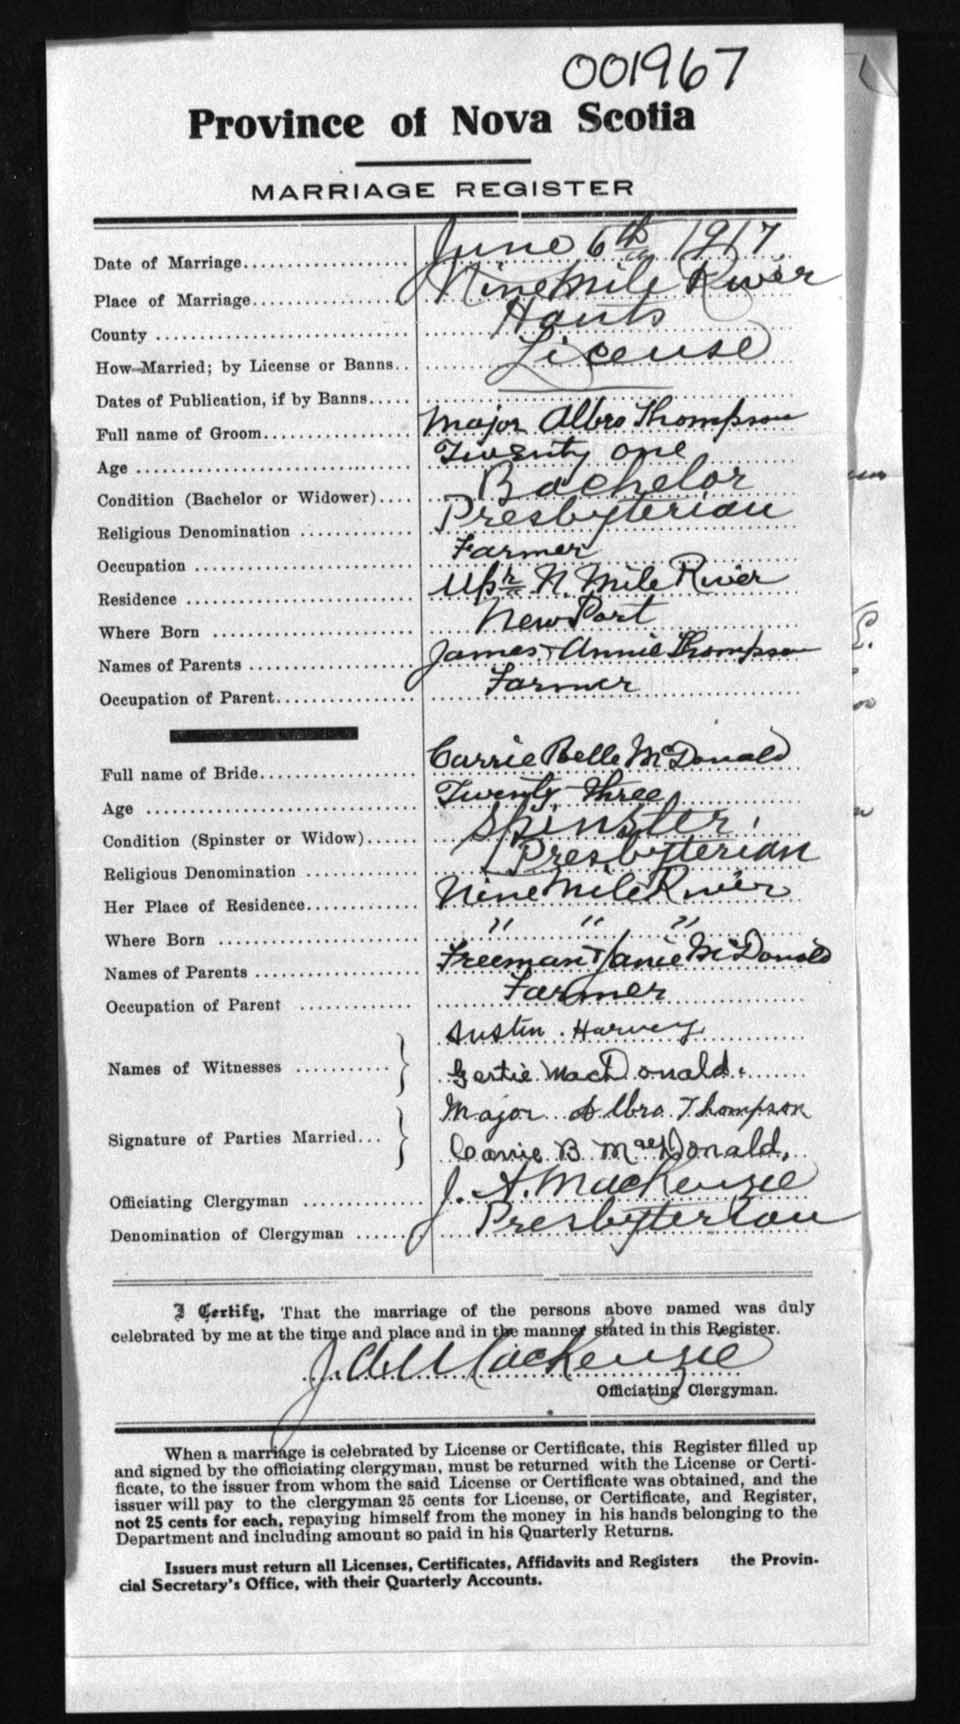 001967
Province of Nova Scotia
MARRIAGE REGISTER
Date of Marriage.................. June 6th 1917
Place of Marriage................. Nine Mile River
County ............................ Hants
How Married; by License or Banns.. License
Dates of Publication, if by Banns.....
Full name of Groom................ Major Albro Thompson
Age ............................... Twenty one
Condition (Bachelor or Widower).... Bachelor
Religious Denomination ............. Presbyterian
Occupation ......................... Farmer
Residence .......................... Upr N. Mile River
Where Born ........................ NewPort
Names of Parents .................. James + Annie Thompson
Occupation of Parent............... Farmer
Full name of Bride................. Carrie Belle McDonald
Age ................................ Twenty three
Condition (Spinster or Widow)...... Spinster
Religious Denomination ............ Presbyterian
Her Place of Residence............. Nine Mile River
Where Born ........................ " " "
Names of Parents .................. Freeman + Janie McDonald
Occupation of Parent .............. Farmer
Austin Harvey
Names of Witnesses ...........
Gertie MacDonald.
Major Albro Thompson
Signature of Parties Married...
Carrie B. MacDonald.
Officiating Clergyman ............. J. A. MacKenzie
Denomination of Clergyman ...... Presbyterian
I Certify, That the marriage of the persons above named was duly
celebrated by me at the time and place and in the manner stated in this Register.
J. A. MacKenzie
Officiating Clergyman.
When a marriage is celebrated by License or Certificate, this Register filled up
and signed by the officiating clergyman, must be returned with the License or Certi-
ficate, to the issuer from whom the said License or Certificate was obtained, and the
issuer will pay to the clergyman 25 cents for License, or Certificate, and Register,
not 25 cents for each, repaying himself from the money in his hands belonging to the
Department and including amount so paid in his Quarterly Returns.
Issuers must return all Licenses, Certificates, Affidavits and Registers the Provin-
cial Secretary's Office, with their Quarterly Accounts.